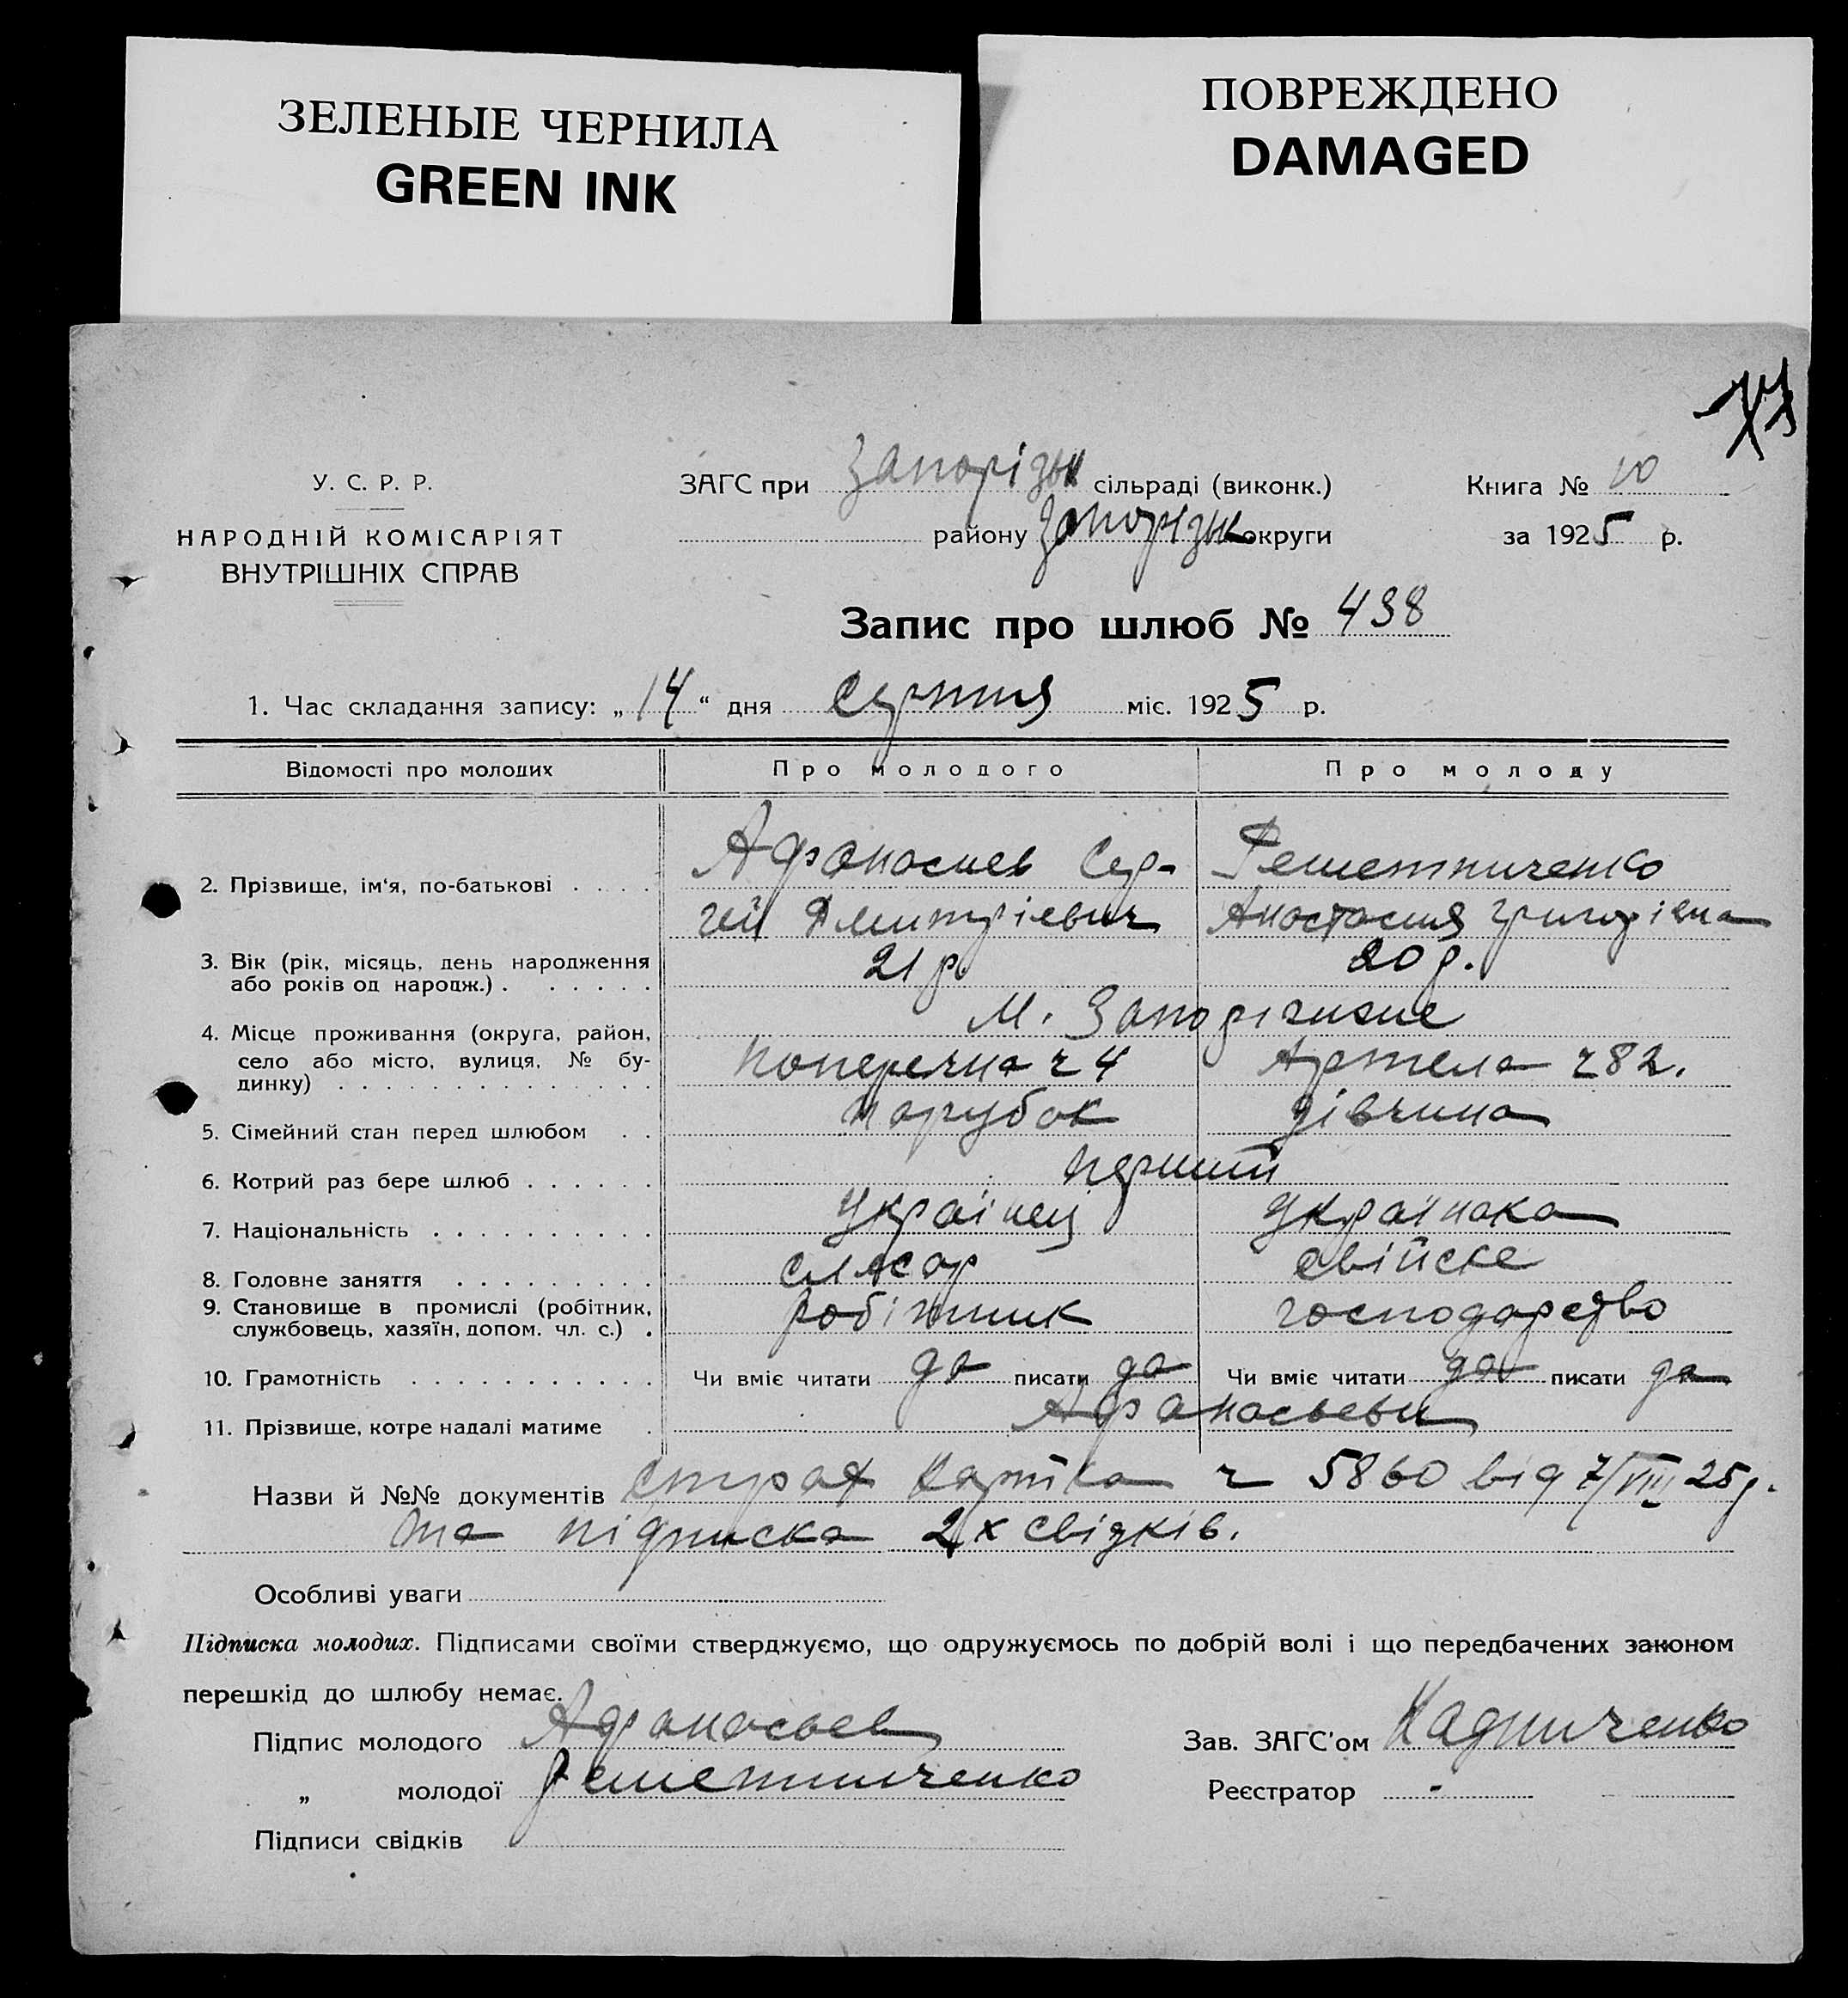 ЗЕЛЕНЫЕ ЧЕРНИЛА
GREEN INK
ПОВРЕЖДЕНО
DAMAGED
У. С. Р. Р.
НАРОДНІЙ КОМІСАРІЯТ
ВНУТРІШНІХ СПРАВ
ЗАГС при Запорізьк сільраді (виконк.)
району Запорізьк округи
Книга № 10
за 1925 р.
Запис про шлюб № 438
1. Час складання запису: „14“ дня серпня міс. 1925 р.
Відомості про молодих Про молодого Про молоду
2. Прізвище, ім‘я, по-батькові . . . . Афанасиев Сер- Решетниченко
гей Дмитріевич Анастасия Григоріена
3. Вік (рік, місяць, день народження 21 р. 20 р.
або років од народж.) . . . . . .
М. Запоріжжие
4. Місце проживання (округа, район,
село або місто, вулиця, № бу- Поперечна ч 4 Артема ч 82.
динку) . . . . . . . . . . . . .
5. Сімейний стан перед шлюбом . . парубок дівчина
6. Котрий раз бере шлюб . . . . . . перший
7. Національність . . . . . . . . . . Українец Українка
8. Головне заняття . . . . . . . . . слюсар свійске
9. Становище в промислі (робітник, робітник господарство
службовець, хазяїн, допом. чл. с.) .
10. Грамотність . . . . . . . . . . . Чи вміє читати да писати да Чи вміє читати да писати да
11. Прізвище, котре надалі матиме . Афанасьеви
Назви й №№ документів страх картка ч 5860 від 7/VIII 25р.
та підписка 2х свідків.
Особливі уваги
Підписка молодих. Підписами своїми стверджуємо, що одружуємось по добрій волі і що передбачених законом
перешкід до шлюбу немає.
Підпис молодого Афанасьев
„ молодої Решетниченко
Підписи свідків
Зав. ЗАГС'ом
Реєстратор -